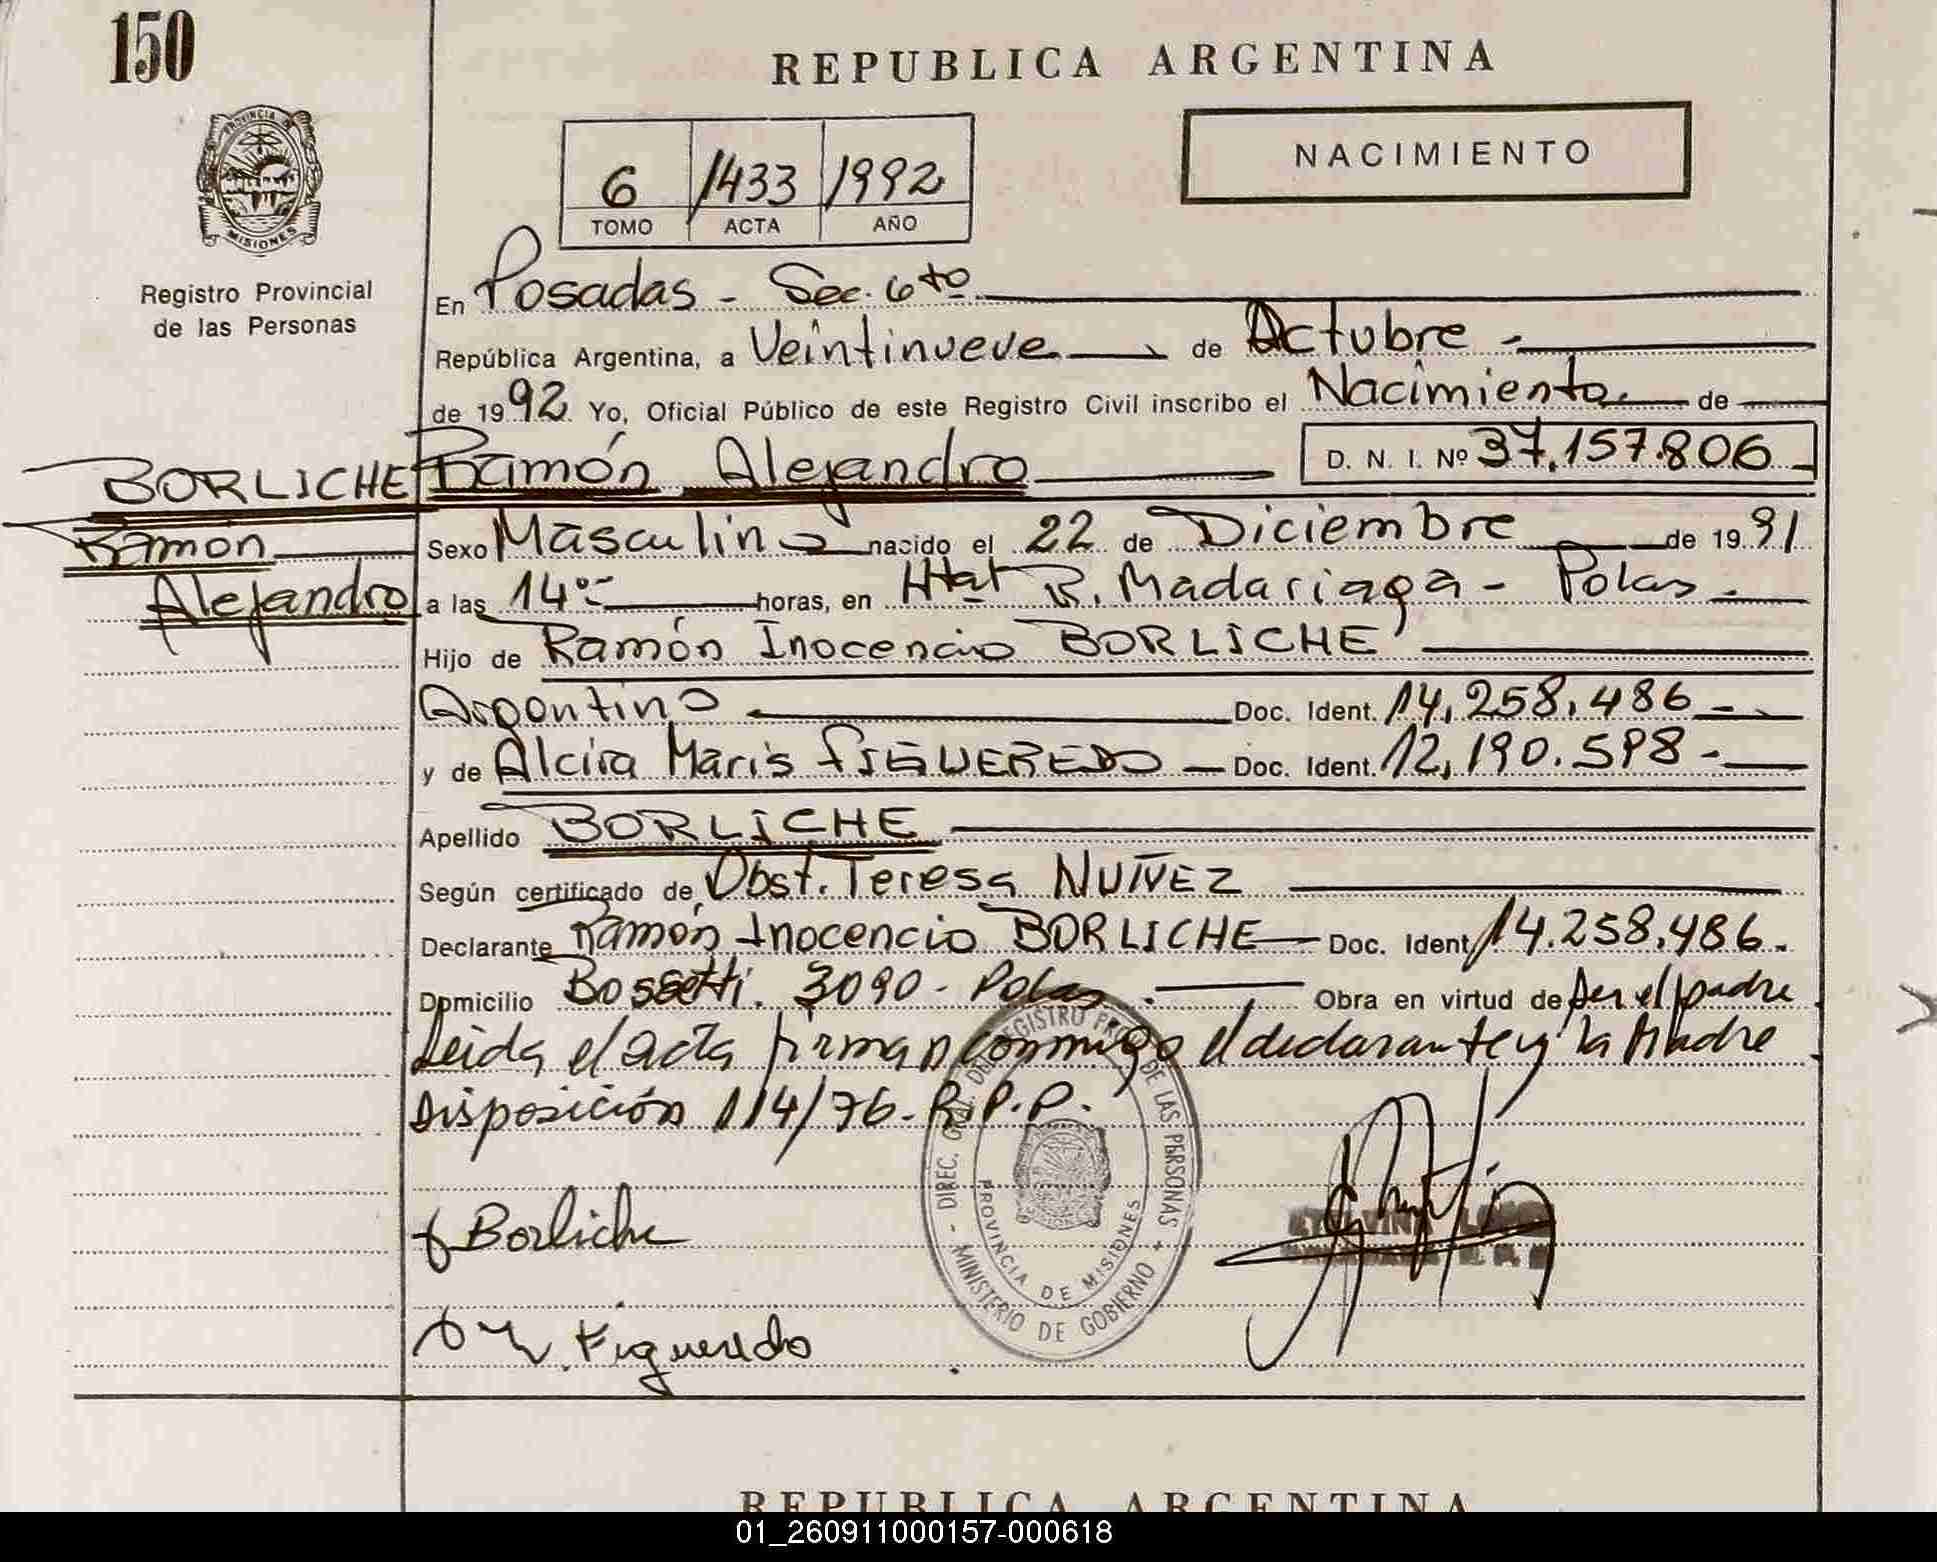 150
REPUBLICA ARGENTINA
NACIMIENTO
6 1433 1992
TOMO ACTA AÑO
PROVINCIA DE
MISIONES
Registro Provincial
de las Personas
En Posadas - Sec. 6to
República Argentina, a Veintinueve de Octubre -
de 1992 Yo, Oficial Público de este Registro Civil inscribo el Nacimiento de
BORLICHE Ramón Alejandro D. N. I. Nº 37.157.806
Ramon
Alejandro
Sexo Masculino nacido el 22 de Diciembre de 1991
a las 14º horas, en Htal R. Madariaga - Pdas -
Hijo de Ramón Inocencio BORLICHE
Argentino Doc. Ident. 14.258.486 -
y de Alcira Maris FIGUEREDO - Doc. Ident. 12.190.598 -
Apellido BORLICHE
Según certificado de Obst. Teresa NUÑEZ
Declarante Ramón Inocencio BORLICHE Doc. Ident. 14.258.486.
Domicilio Bossetti. 3090 - Pdas. Obra en virtud de ser el padre
Leida el acta firman conmigo el declarante y la Madre
Disposición 114/76 - R.P.P.
DIREC. GRAL. DEL REGISTRO PROV. DE LAS PERSONAS
PROVINCIA DE MISIONES
MINISTERIO DE GOBIERNO
Borliche
Figueredo
REPUBLICA ARGENTINA
01_260911000157-000618